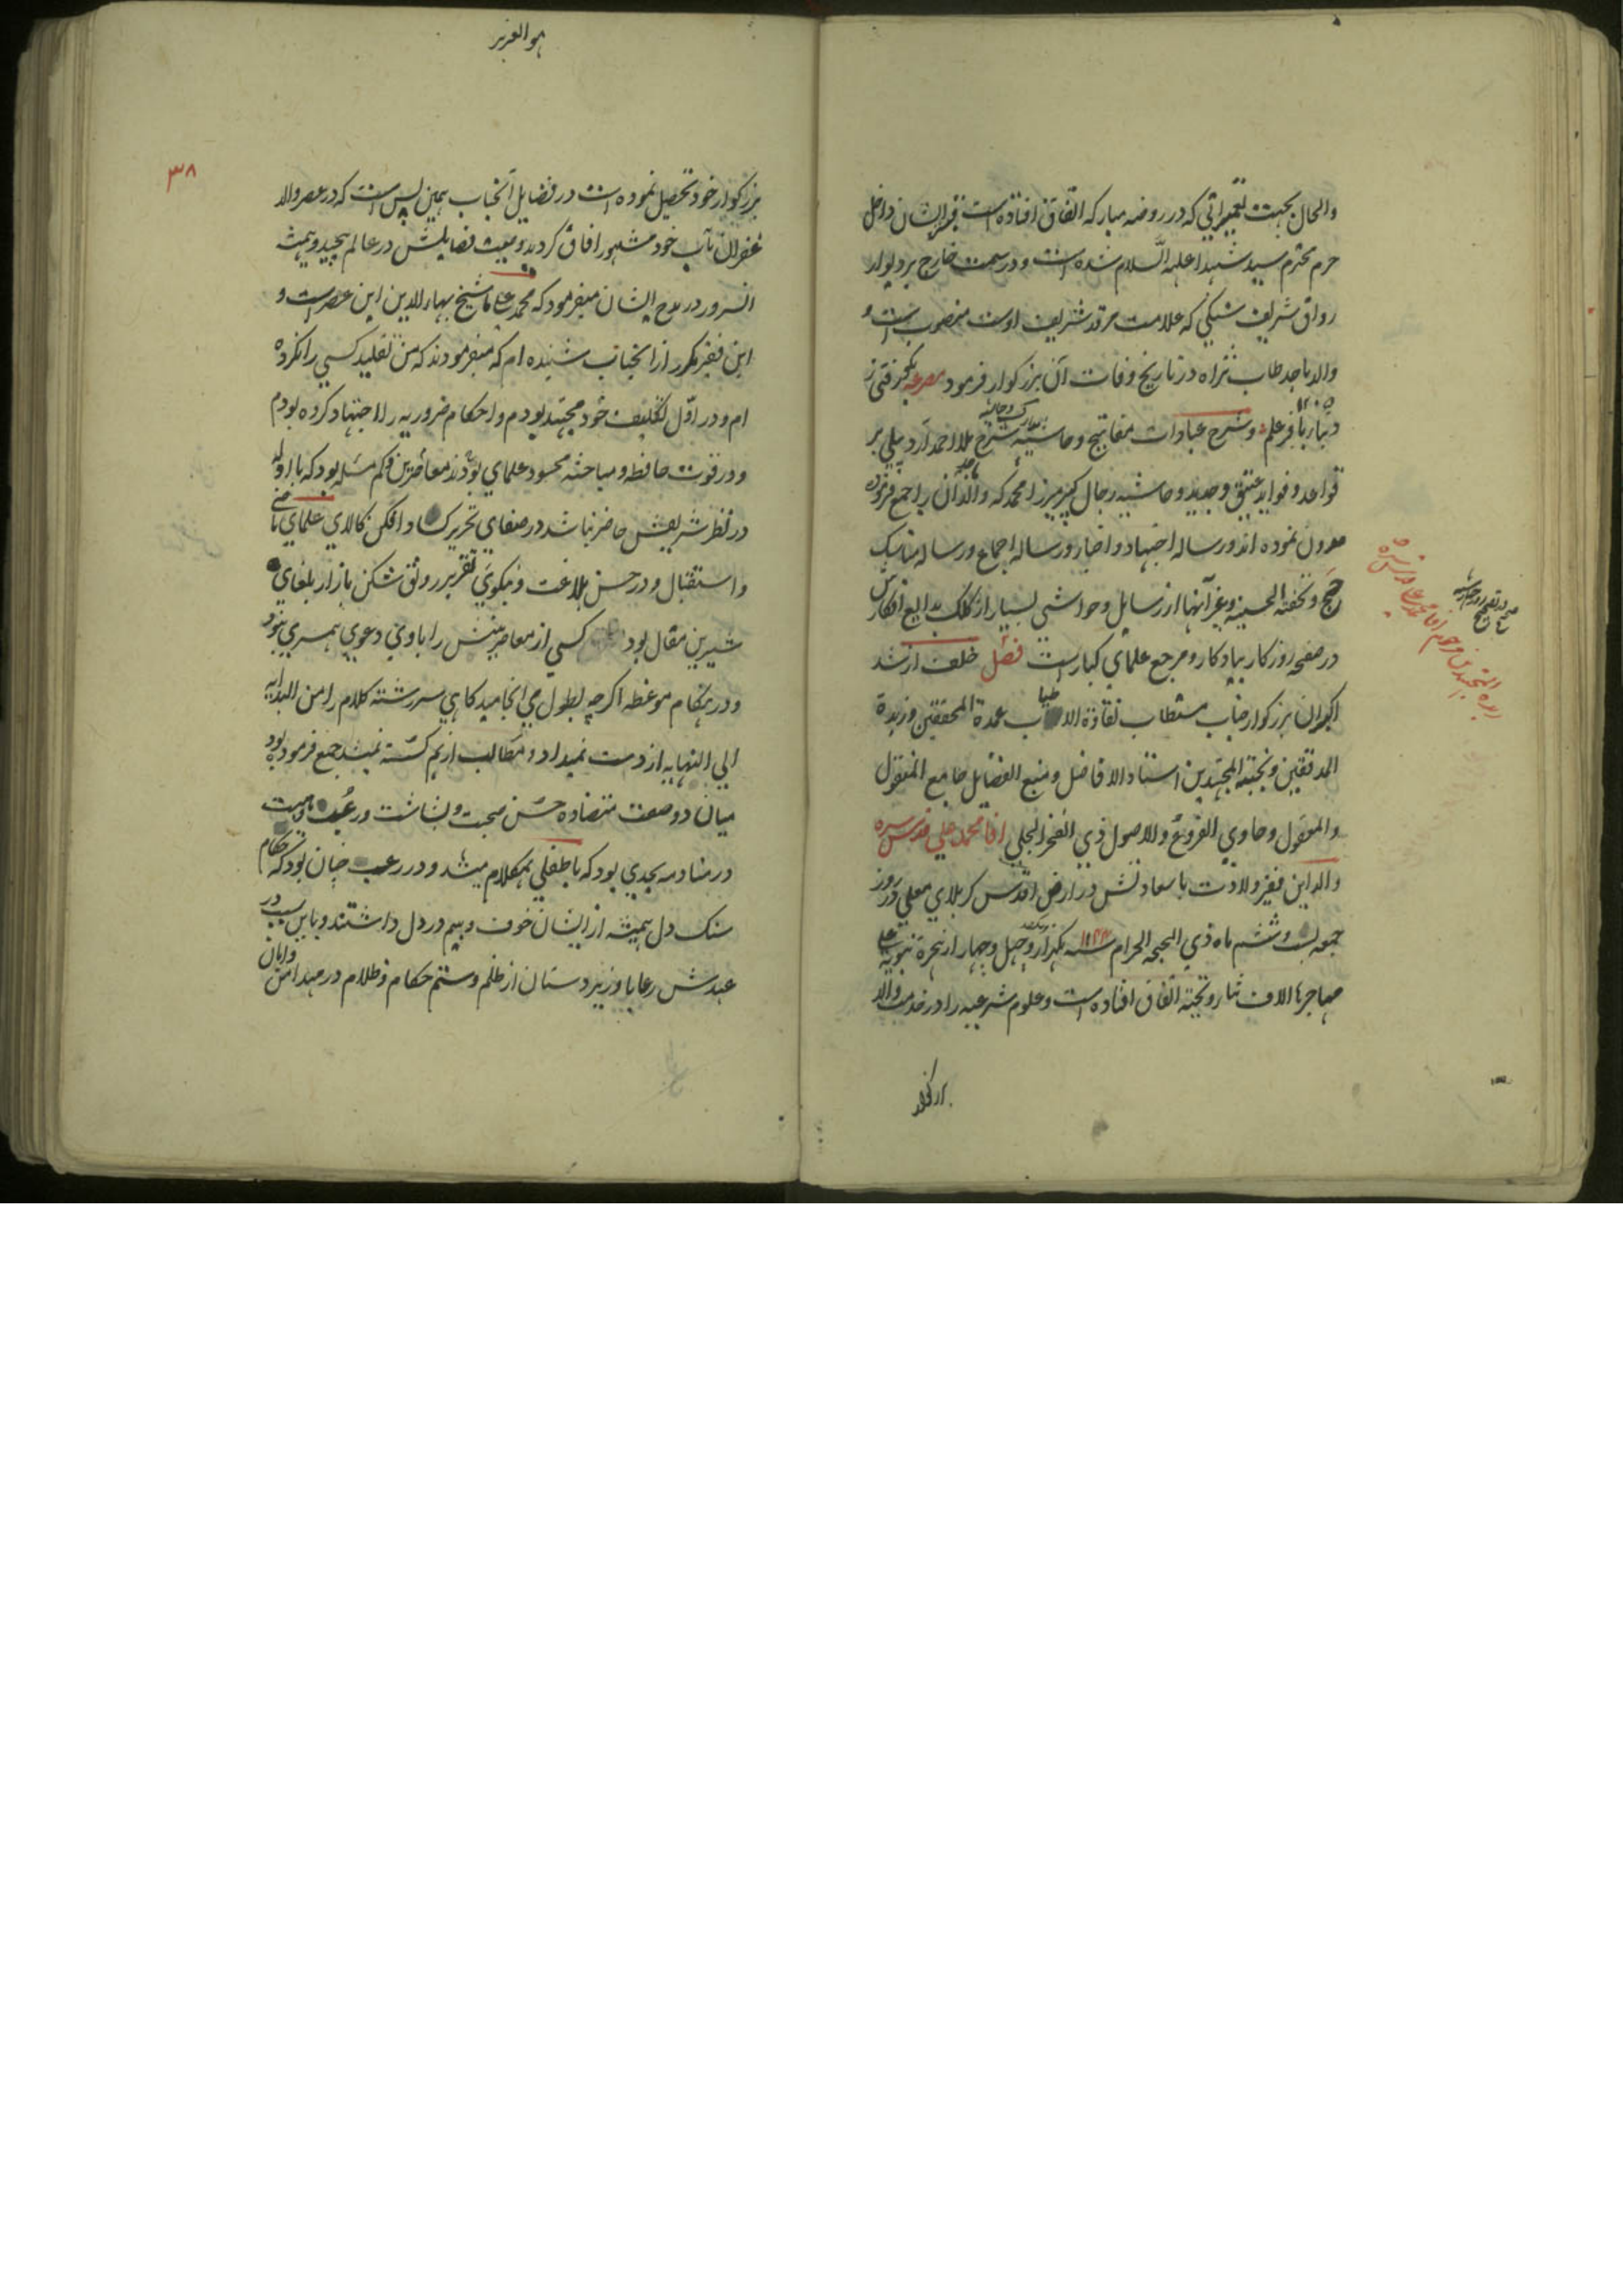 والحال بجهت تعمیراتی که در روضه مبارکه اتفاق افتاده است قبر ایشان داخل
حرم محترم سید شهدا علیه السلام شده است و در سمت خارج بر دیوار
رواق شریف سنکی که علامت مرقد شریف اوست منصوب است و
والد ماجد طاب ثراه در تاریخ وفات آن بزرکوار فرمود مصرعه رفتی ز
دنیا باقر علم و شرح عبادات مفاتیح و حاشیه شرح ملا احمد اردبیلی بر
قواعد و فواید عتیق و جدید و حاشیه رجال کبیر میرزا محمد که والد آن را جمع فرموده
مدون نموده اند و رساله اجتهاد و اخبار و رساله اجماع و رساله مناسک
حج و تحفة الحسینیه و غیر آنها از رسایل و حواشی بسیار از کلک بدایع افکارش
در صفحه روزکار بیادکار و مرجع علمای کبار است فصل خلف ارشد
اکبر ان بزرکوار جناب مستطاب نقاوة الاطیاب عمدة المحققین و زبدة
المدققین و نخبة المجتهدین استاد الافاضل و منبع الفضایل جامع المنقول
والمعقول و حاوی الفروع والاصول ذی الفخر الجلی اقا محمد علی قدس سره
والد این فقیر ولادت باسعادتش در ارض اقدس کربلای معلی در روز
جمعه بیست و ششم ماه ذی الحجه الحرام ۱۱۴۴ سنه یکهزار و یکصد و چهل و چهار از هجرة نبویه علی
مهاجرها الاف ثنا و تحیة اتفاق افتاده است و علوم شرعیه را در خدمت والد
هو العزیز
۳۸
بزرکوار خود تحصیل نموده است در فضایل آنجناب همین بس است که در عصر والد
غفران مآب خود مشهور افاق کردید وصیت فضایلش در عالم پیچید و همیشه
انسرور در مدح ایشان میفرمود که محمد علی ما شیخ بهاء الدین این عصر است و
این فقیر مکرر از انجناب شنیده ام که میفرمودند که من تقلید کسی را نکرده
ام و در اول تکلیف خود مجتهد بودم و احکام ضروریه را اجتهاد کرده بودم
و در قوت حافظه و مباحثه محسود علمای معاصرین و کم مسئله بود که با ادله
در نظر شریفش حاضر نباشد در صفای تحریر کساد افکن کالای علمای ماضی
و استقبال و در حسن بلاغت و نیکوی تقریر رونق شکن بازار بلغای
شیرین مقال بود کسی از معاصرینش را با وی دعوی همسری نبود
و در هنکام موعظه اکرچه بطول می انجامید کاهی سررشته کلام را من البدایه
الی النهایه از دست نمیداد و مطالب از هم کسسته نمیشد جمع فرموده بود
میان دو صفت متضاده حسن صحبت و بشاشت و رعب و هیبت
در منادمه بحدی بود که با طفلی همکلام میشد و در رعب چنان بود که حکام
سنک دل همیشه از ایشان خوف و بیم در دل داشتند و باین سبب در
عهدش رعایا و زیردستان از ظلم و ستم حکام و ظلام در مهد امن و امان